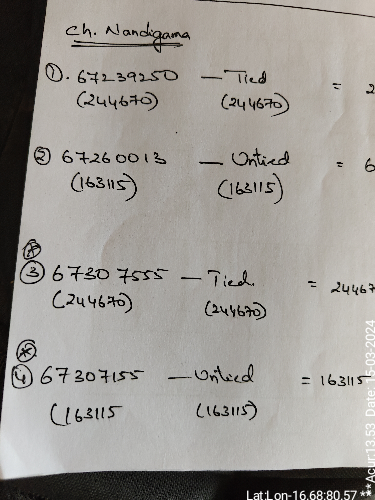 Ch. Nandigama
①. 67239250 — Tied = 2
(244670) (244670)
② 67260013 — Untied = 6
(163115) (163115)
③ 67307555 — Tied = 24467
(244670) (244670)
④ 67307155 — Untied = 163115
(163115 (163115)
Lat:Lon-16.68:80.57 ** Acur:13.53 Date: 15-03-2024